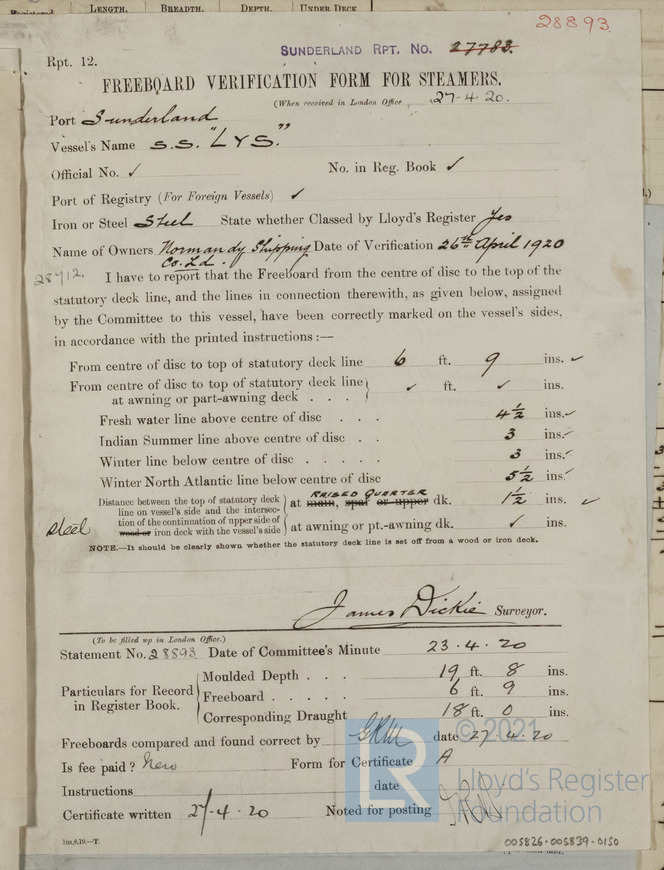 Registered LENGTH. BREADTH. DEPTH. UNDER DECK
28893
SUNDERLAND RPT. NO. 27783.
Rpt. 12.
FREEBOARD VERIFICATION FORM FOR STEAMERS.
(When received in London Office, 27.4.20.
Port Sunderland
Vessel's Name S.S. "LYS."
Official No. ✓ No. in Reg. Book ✓
Port of Registry (For Foreign Vessels) ✓
Iron or Steel Steel State whether Classed by Lloyd's Register Yes
Name of Owners Normandy Shipping Date of Verification 26th April 1920
Co. Ld.
28712. I have to report that the Freeboard from the centre of disc to the top of the
statutory deck line, and the lines in connection therewith, as given below, assigned
by the Committee to this vessel, have been correctly marked on the vessel's sides,
in accordance with the printed instructions :—
From centre of disc to top of statutory deck line 6 ft. 9 ins. ✓
From centre of disc to top of statutory deck line
at awning or part-awning deck . . . ✓ ft. ✓ ins.
Fresh water line above centre of disc . . . 4½ ins. ✓
Indian Summer line above centre of disc . . 3 ins. ✓
Winter line below centre of disc . . . . . 3 ins. ✓
Winter North Atlantic line below centre of disc 5½ ins. ✓
Distance between the top of statutory deck
line on vessel's side and the intersec-
tion of the continuation of upper side of
steel wood or iron deck with the vessel's side
RAISED QUARTER
at main, spar or upper dk. 1½ ins. ✓
at awning or pt.-awning dk. ✓ ins.
NOTE.—It should be clearly shown whether the statutory deck line is set off from a wood or iron deck.
James Dickie Surveyor.
(To be filled up in London Office.)
Statement No. 28893 Date of Committee's Minute 23.4.20
Particulars for Record
in Register Book.
Moulded Depth . . . 19 ft. 8 ins.
Freeboard . . . . . 6 ft. 9 ins.
Corresponding Draught 18 ft. 0 ins.
Freeboards compared and found correct by date 27.4.20
Is fee paid? New Form for Certificate A
Instructions date
Certificate written 27.4.20 Noted for posting
1m,8,19.—T.
© 2021
LR
Lloyd's Register
Foundation
005826-005839-0150